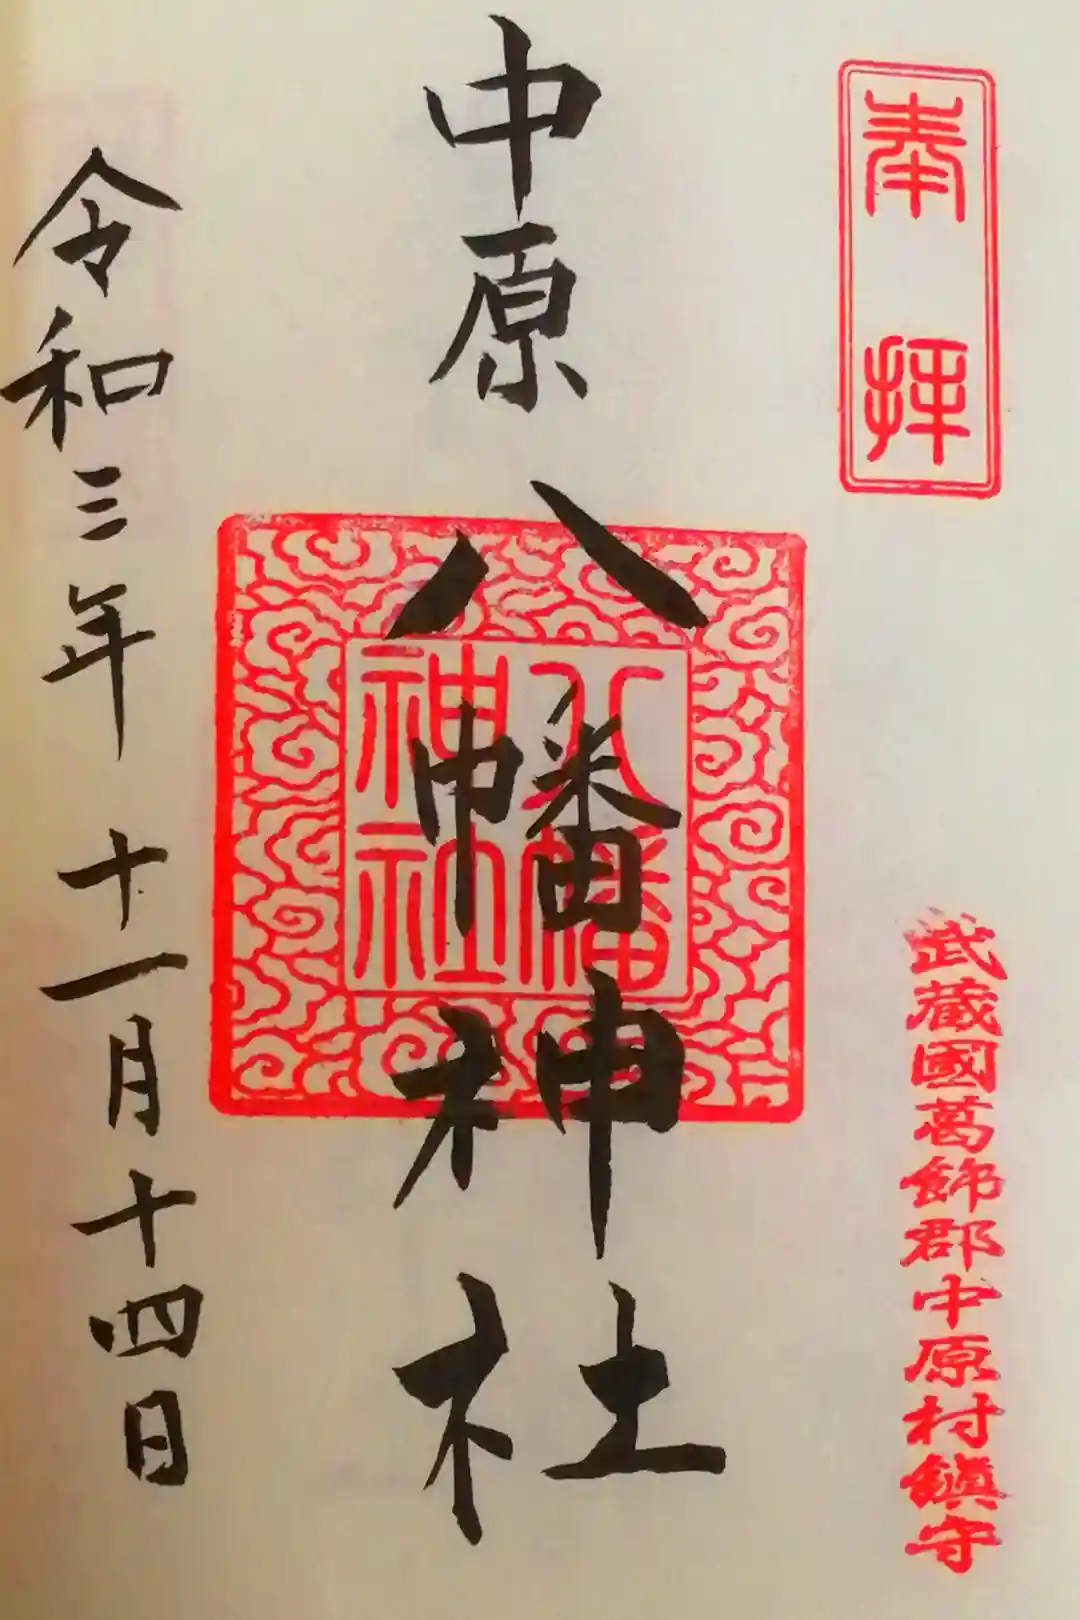 奉拝
武蔵國葛飾郡中原村鎮守
中原八幡神社
八幡
神社
令和三年十一月十四日